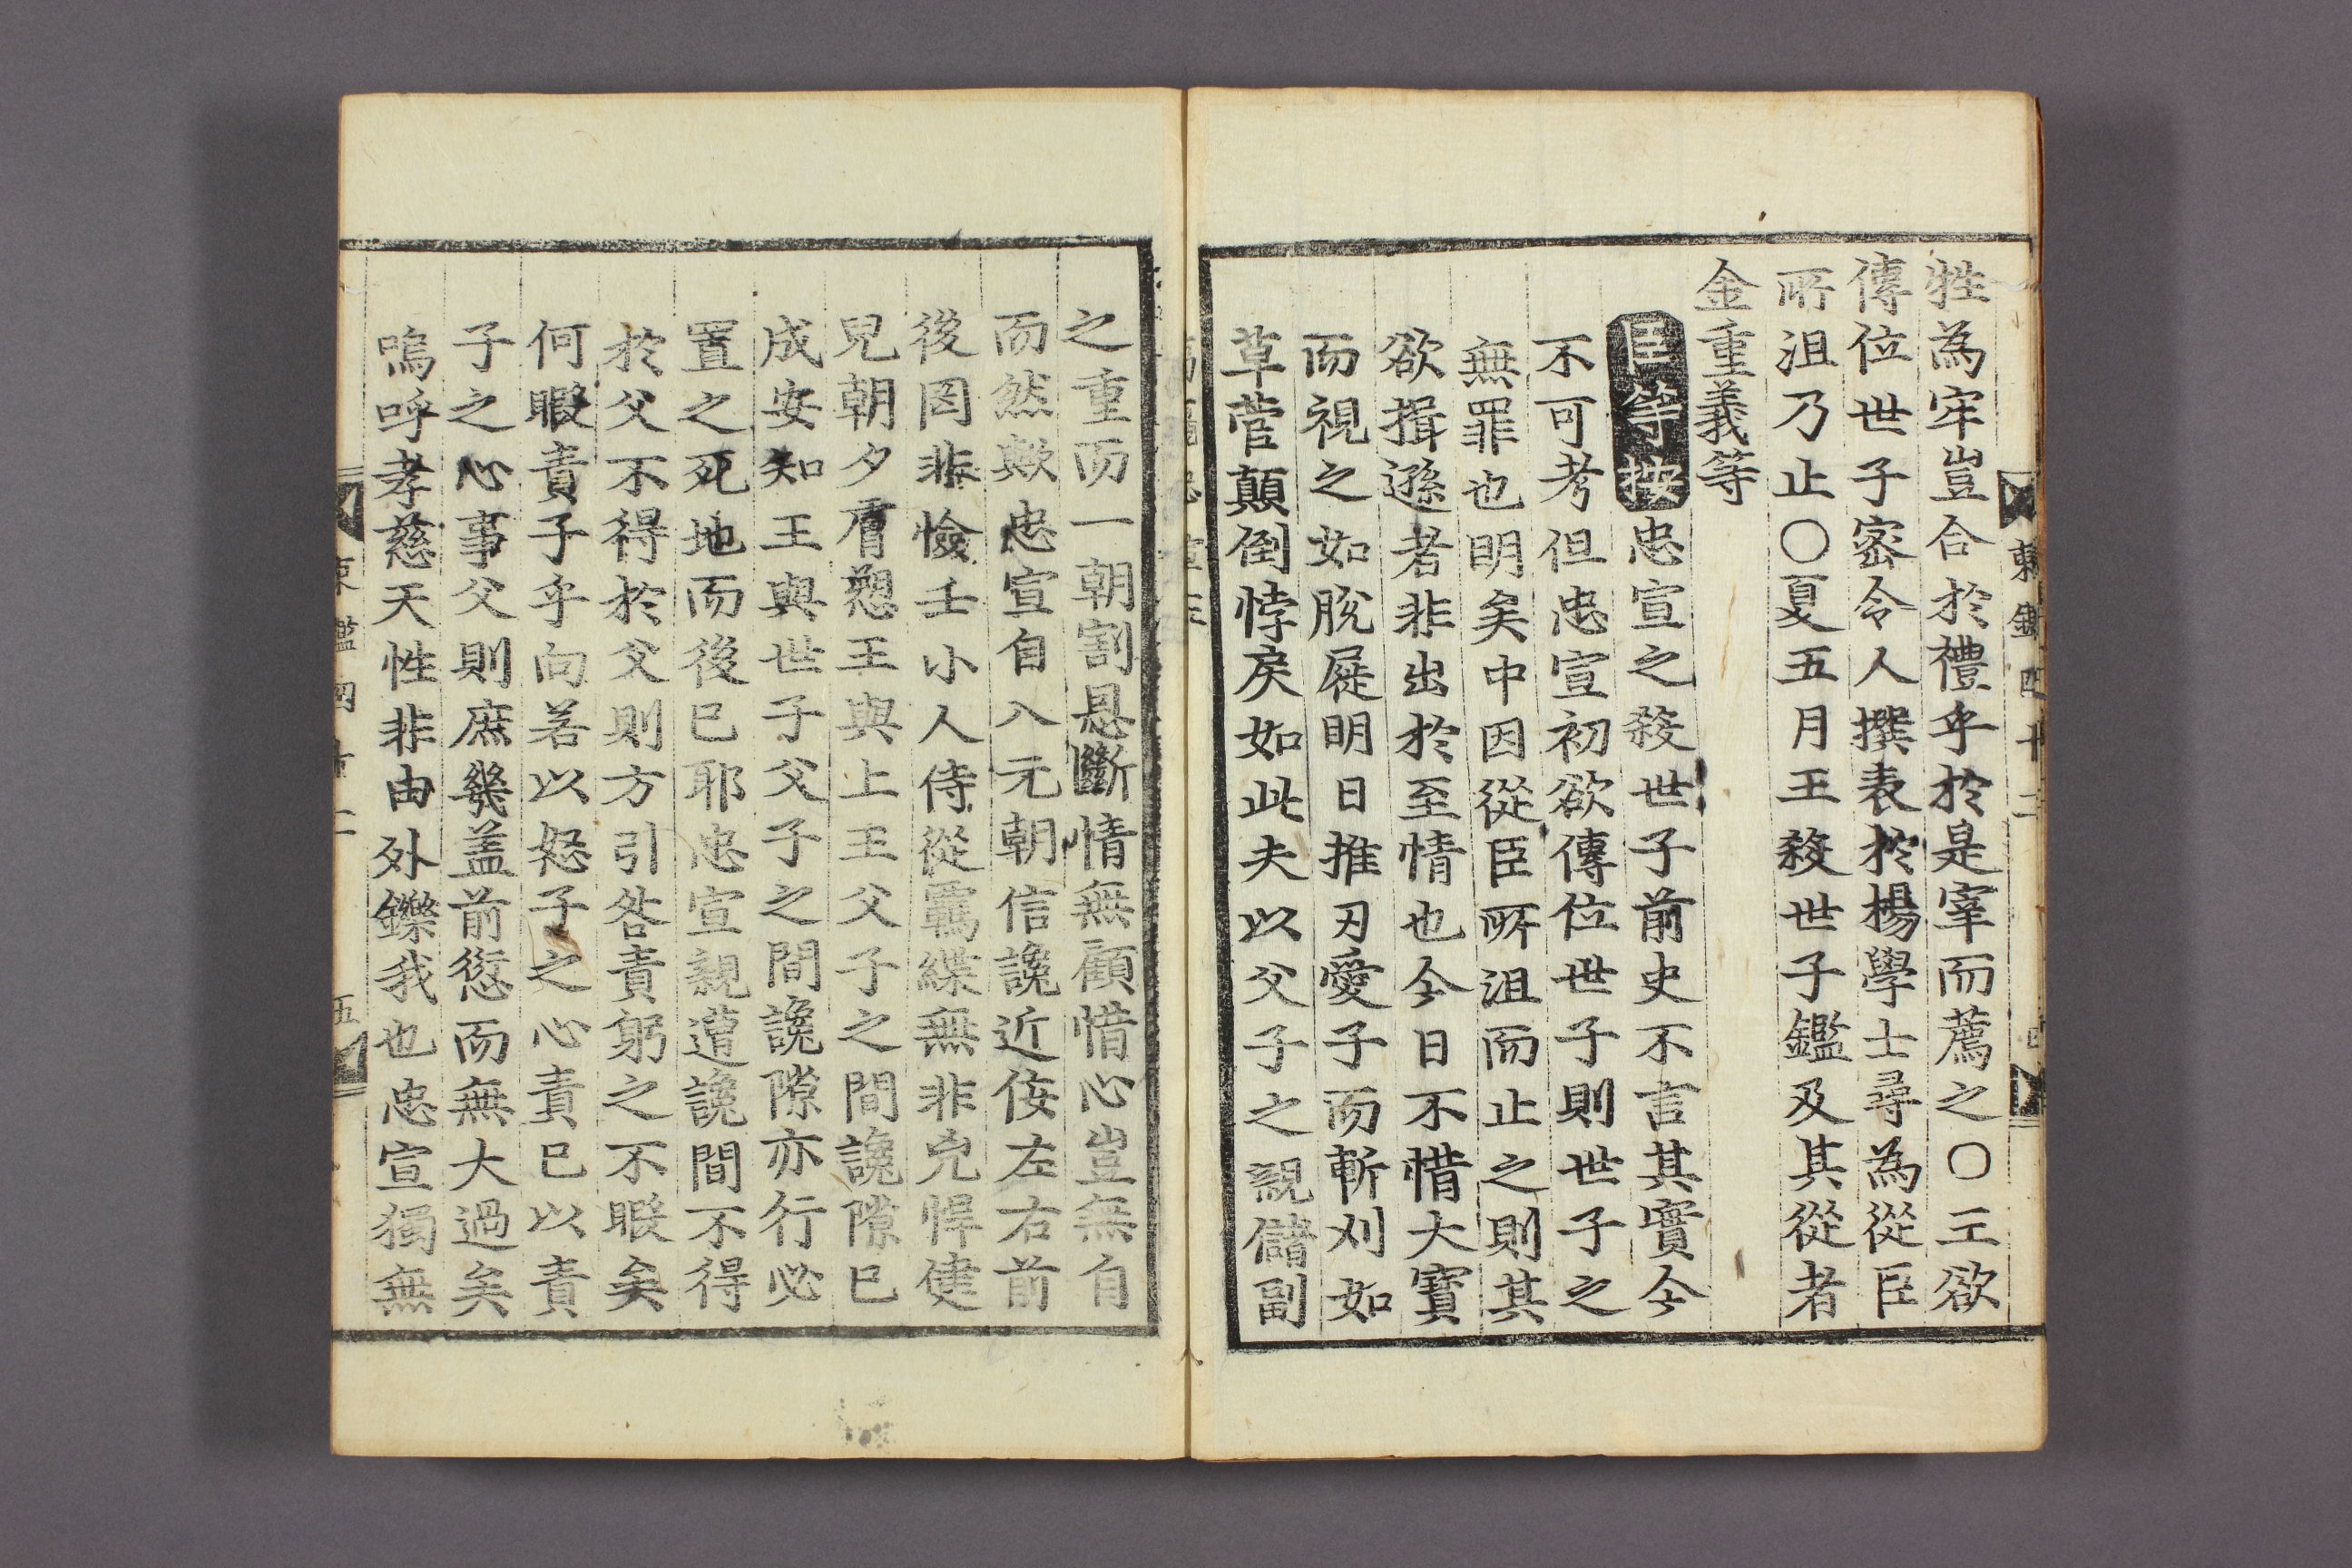 東鑑四十二
牲為牢豈合於禮乎於是宰而薦之○王欲
傳位世子密令人撰表於楊學士尋為從臣
所沮乃止○夏五月王殺世子鑑及其從者
金重義等
臣等按忠宣之殺世子前史不言其實今
不可考但忠宣初欲傳位世子則世子之
無罪也明矣中因從臣所沮而止之則其
欲揖遜者非出於至情也今日不惜大寶
而視之如脫屣明日推刃愛子而斬刈如
草菅顛倒悖戾如此夫以父子之親儲副
之重而一朝割恩斷情無顧惜心豈無自
而然歟忠宣自入元朝信讒近侫左右前
後罔非憸壬小人侍從羈緤無非兇悍健
兒朝夕膚愬王與上王父子之間讒隙已
成安知王與世子父子之間讒隙亦行必
置之死地而後已耶忠宣親遭讒間不得
於父不得於父則方引咎責躬之不暇矣
何暇責子乎向若以怒子之心責已以責
子之心事父則庶幾盖前愆而無大過矣
嗚呼孝慈天性非由外鑠我也忠宣獨無
東鑑四十二
五